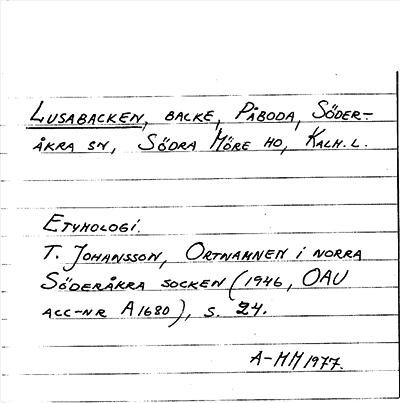 Lusabacken, backe, Påboda, Söder-
åkra sn, Södra Möre hd, Kalm. l.
Etymologi.
T. Johansson, Ortnamnen i norra
Söderåkra socken (1946, OAU
acc-nr A1680), s. 24.
A-MM 1977.